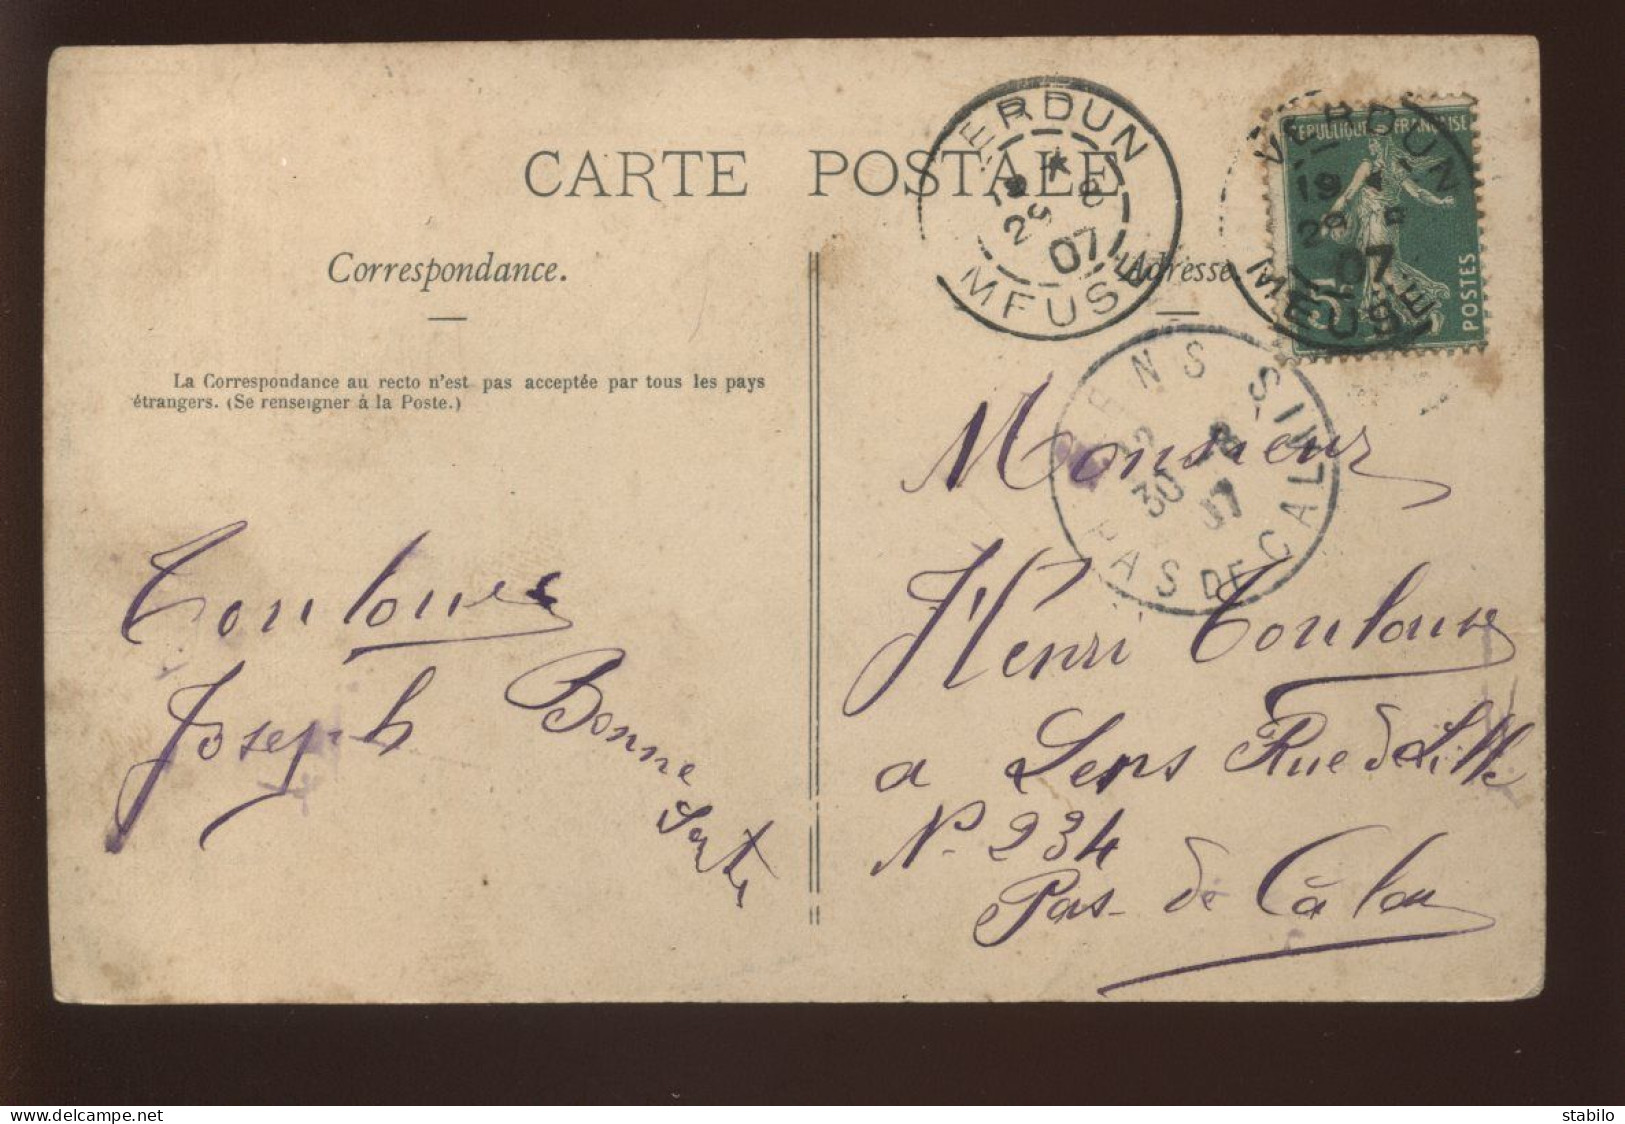 CARTE POSTALE
Correspondance.
Adresse
La Correspondance au recto n'est pas acceptée par tous les pays
étrangers. (Se renseigner à la Poste.)
VERDUN
19 * 8
29
07
MEUSE
REPUBLIQUE FRANÇAISE
POSTES
VERDUN
19 *
29
07
MEUSE
LENS
12 8
30
07
PAS DE CALAIS
Toulouse
Joseph Bonne
Monsieur
Henri Toulouse
a Lens Rue de Lille
No 234
Pas-de Calais
stabilo